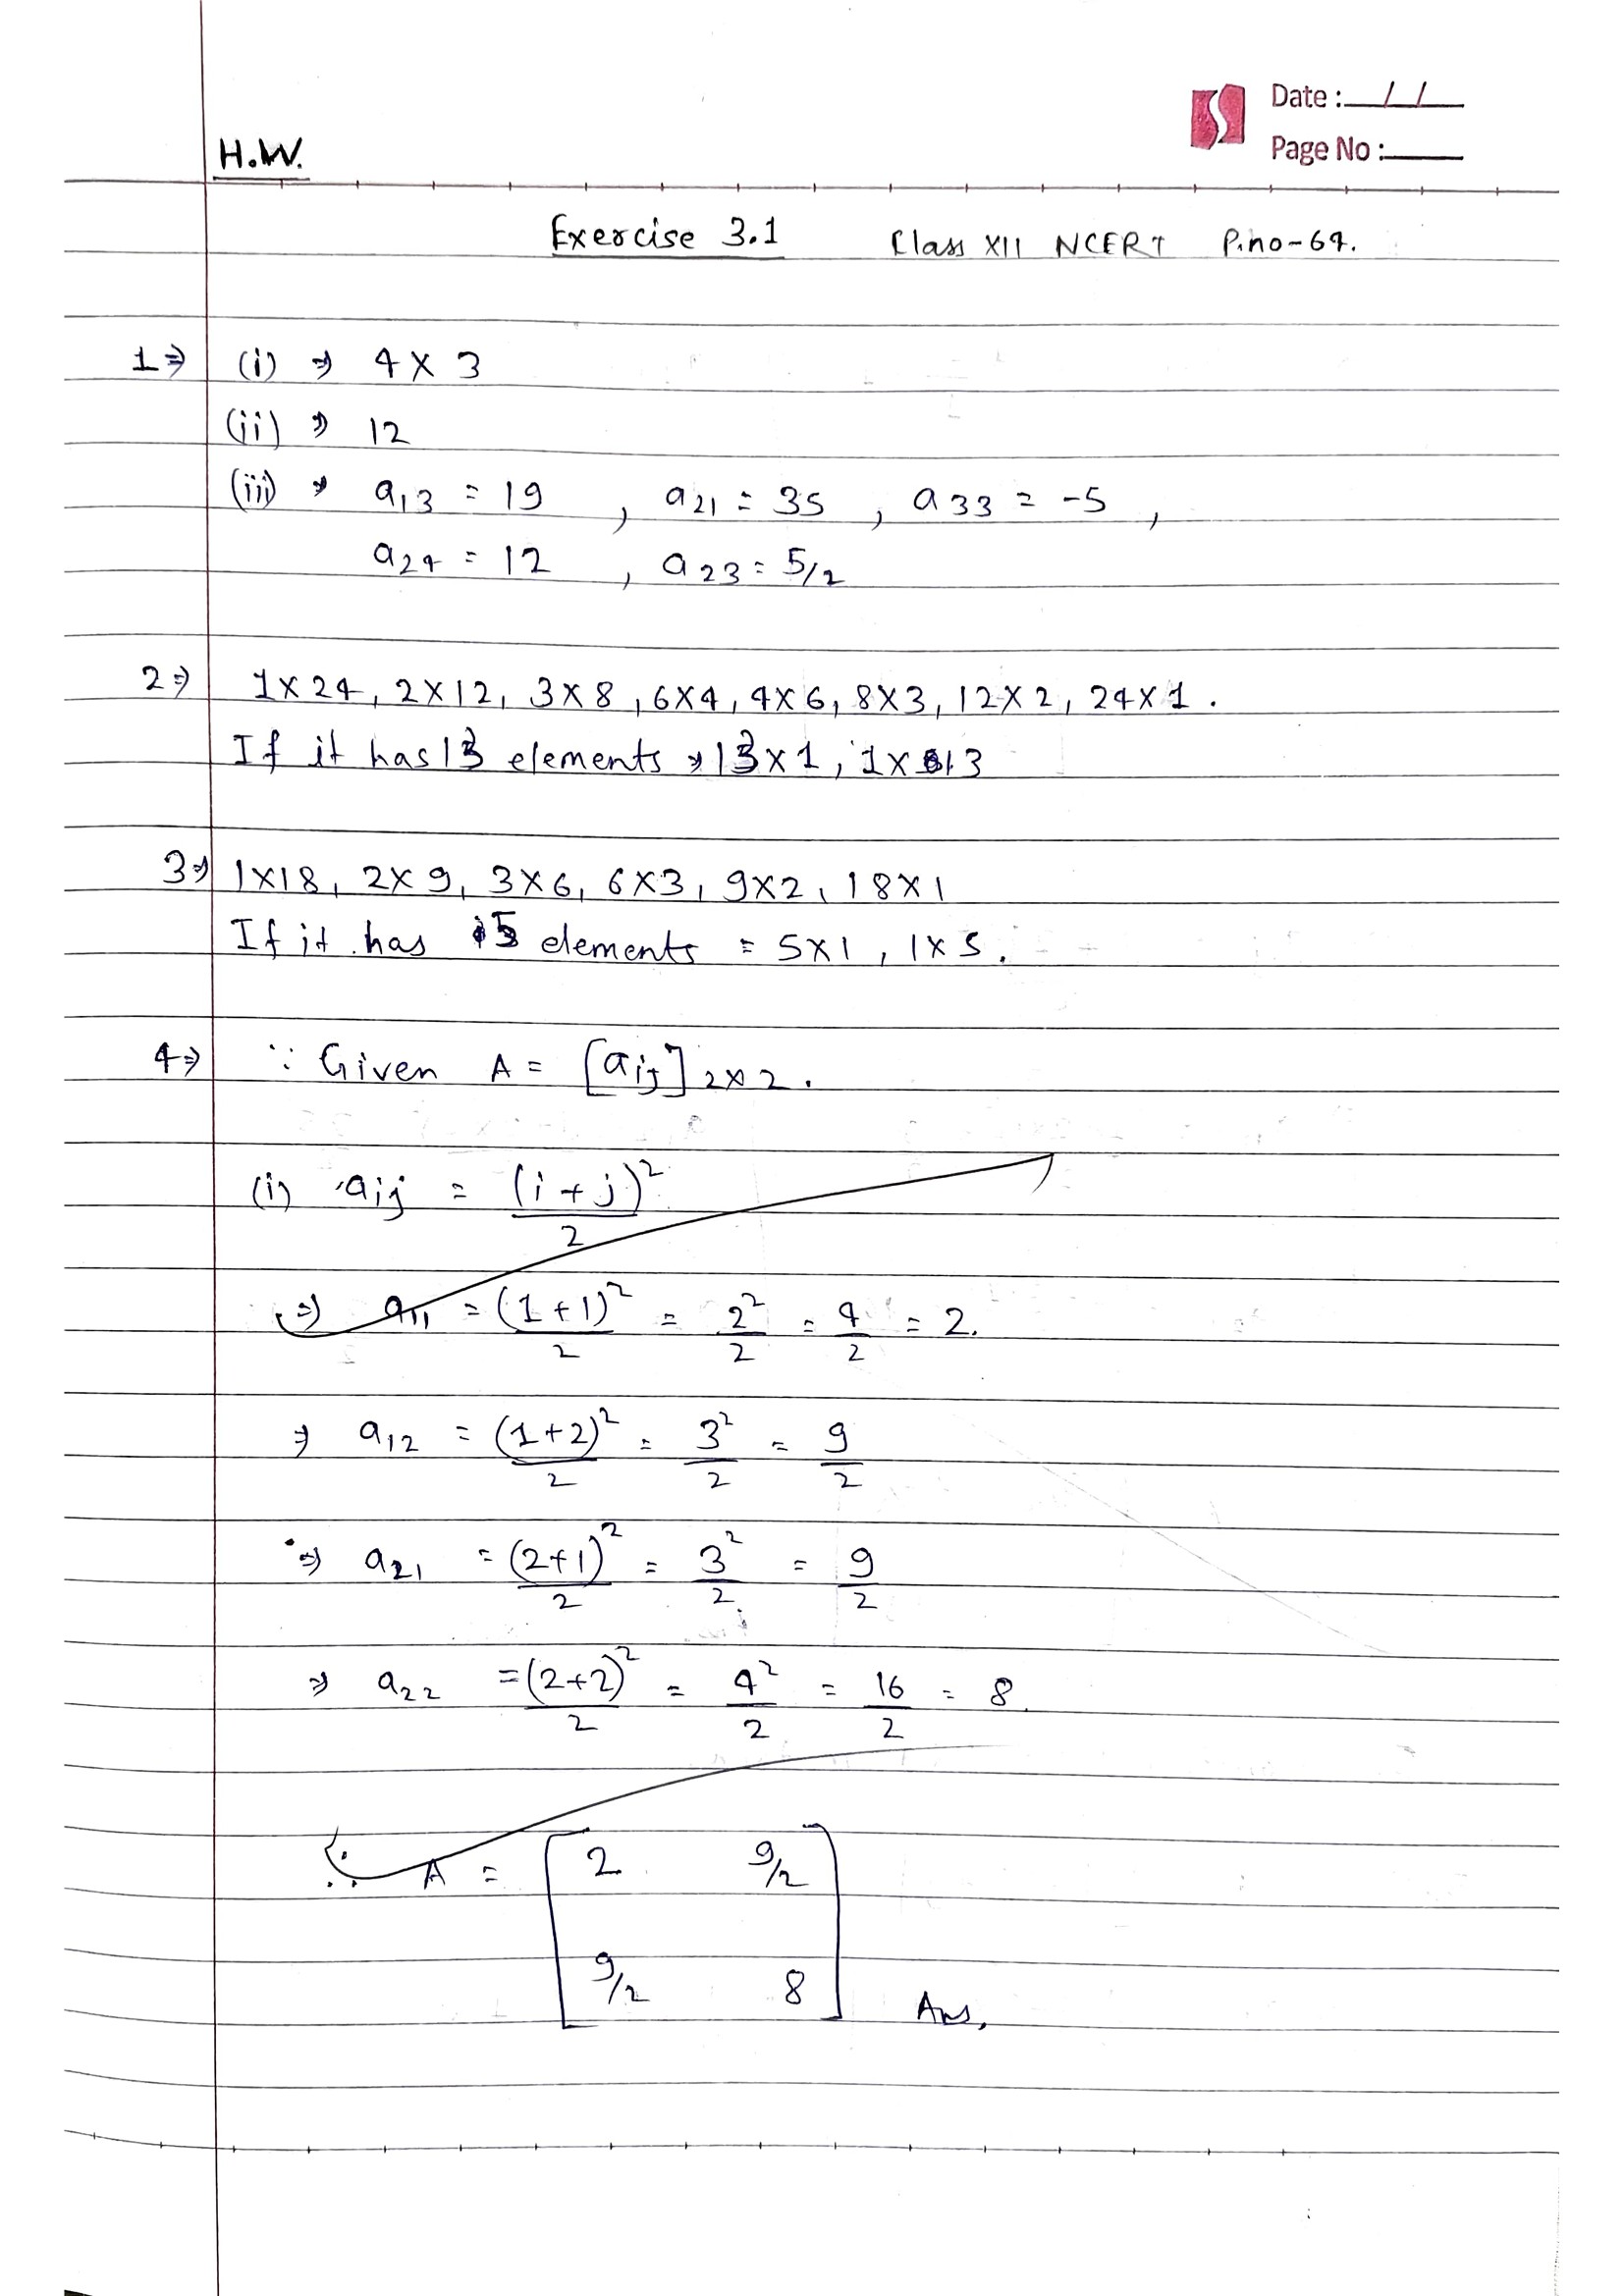 Date : / /
Page No :
H.W.
Exercise 3.1 Class XII NCERT P.no-64.
1⇒ (i) ⇒ 4 × 3
(ii) ⇒ 12
(iii) ⇒ a₁₃ = 19 , a₂₁ = 35 , a₃₃ = -5 ,
a₂₄ = 12 , a₂₃ = 5/2
2⇒ 1×24, 2×12, 3×8, 6×4, 4×6, 8×3, 12×2, 24×1.
If it has 13 elements ⇒ 13×1, 1×13
3⇒ 1×18, 2×9, 3×6, 6×3, 9×2, 18×1
If it has 5 elements = 5×1, 1×5.
4⇒ ∵ Given A = [aij] 2×2.
(i) aij = (i+j)²/2
⇒ a₁₁ = (1+1)²/2 = 2²/2 = 4/2 = 2.
⇒ a₁₂ = (1+2)²/2 = 3²/2 = 9/2
⇒ a₂₁ = (2+1)²/2 = 3²/2 = 9/2
⇒ a₂₂ = (2+2)²/2 = 4²/2 = 16/2 = 8.
∴ A = [2 9/2
9/2 8] Ans,